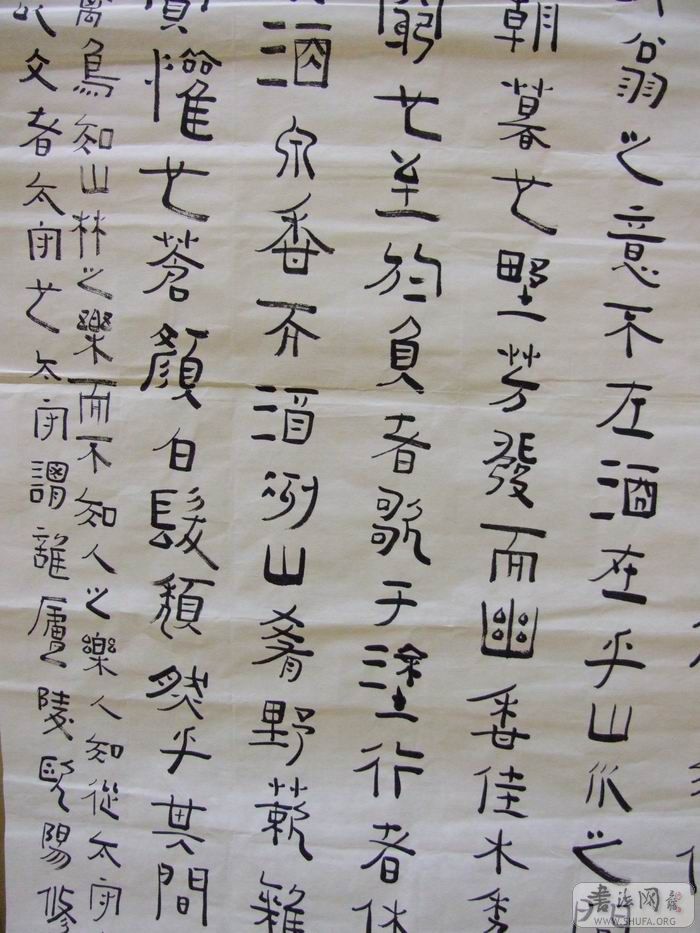 翁之意不在酒在乎山水之間
朝暮也野芳發而幽香佳木秀
窮也至於負者歌于塗行者休
酒泉香而酒洌山肴野蔌雜
賓懽也蒼顏白髮頹然乎其間
禽鳥知山林之樂而不知人之樂人知從太守
文者太守也太守謂誰廬陵歐陽修
书法网
WWW.SHUFA.ORG